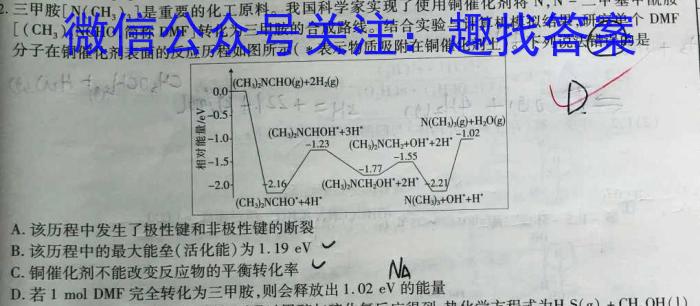 2. 三甲胺[N(CH₃)₃]是重要的化工原料。我国科学家实现了使用铜催化剂将N,N-二甲基甲酰胺
[(CH₃)₂NCHO,简称DMF]转化为三甲胺的合成路线。结合实验与计算机模拟结果,研究单个DMF
分子在铜催化剂表面的反应历程如图所示(*表示物质吸附在铜催化剂上)。下列说法错误的是
微信公众号关注:趣找答案
D
相对能量/eV
0.0
-0.5
-1.0
-1.5
-2.0
(CH₃)₂NCHO(g)+2H₂(g)
(CH₃)₂NCHOH*+3H*
-1.23
N(CH₃)₃(g)+H₂O(g)
-1.02
(CH₃)₂NCH₂+OH*+2H*
-1.55
-1.77
-2.16
(CH₃)₂NCH₂OH*+2H*
-2.21
(CH₃)₂NCHO*+4H*
N(CH₃)₃+OH*+H*
A. 该历程中发生了极性键和非极性键的断裂
B. 该历程中的最大能垒(活化能)为1.19 eV
C. 铜催化剂不能改变反应物的平衡转化率
NA
D. 若1 mol DMF完全转化为三甲胺,则会释放出1.02 eV的能量